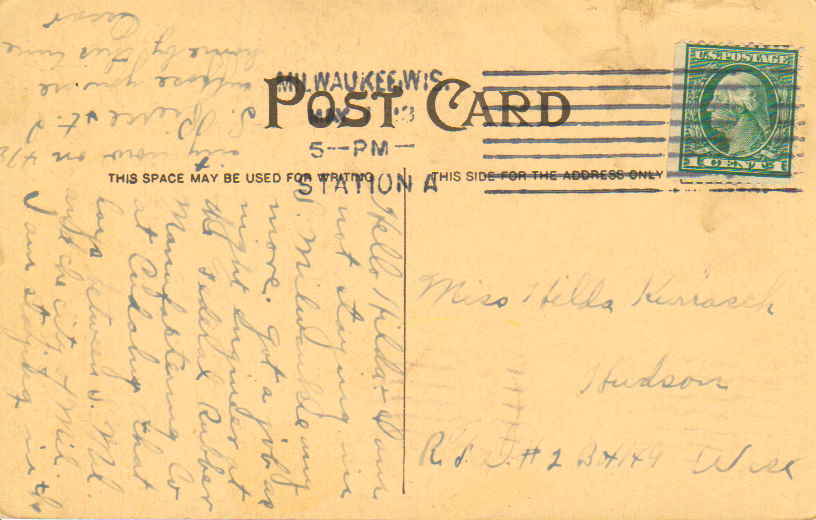 POST CARD
MILWAUKEE, WIS.
MAY 13
5--PM--
STATION A
U.S. POSTAGE
1 CENT 1
THIS SPACE MAY BE USED FOR WRITING
THIS SIDE FOR THE ADDRESS ONLY
Hello Hilda: I am
not staying in
S. Milwaukee any
more. Got a job as
night Enginier at
the Federal Rubber
Manufactering Co
at Cudahy that
lays between S. Mil.
and the city of Mil.
I am staying in the
city now on
S. Pierce st. I
supose you are
home by this time
Oscar
Miss Hilda
Hudson
R. F. D. # 2 B# 149 Wisc